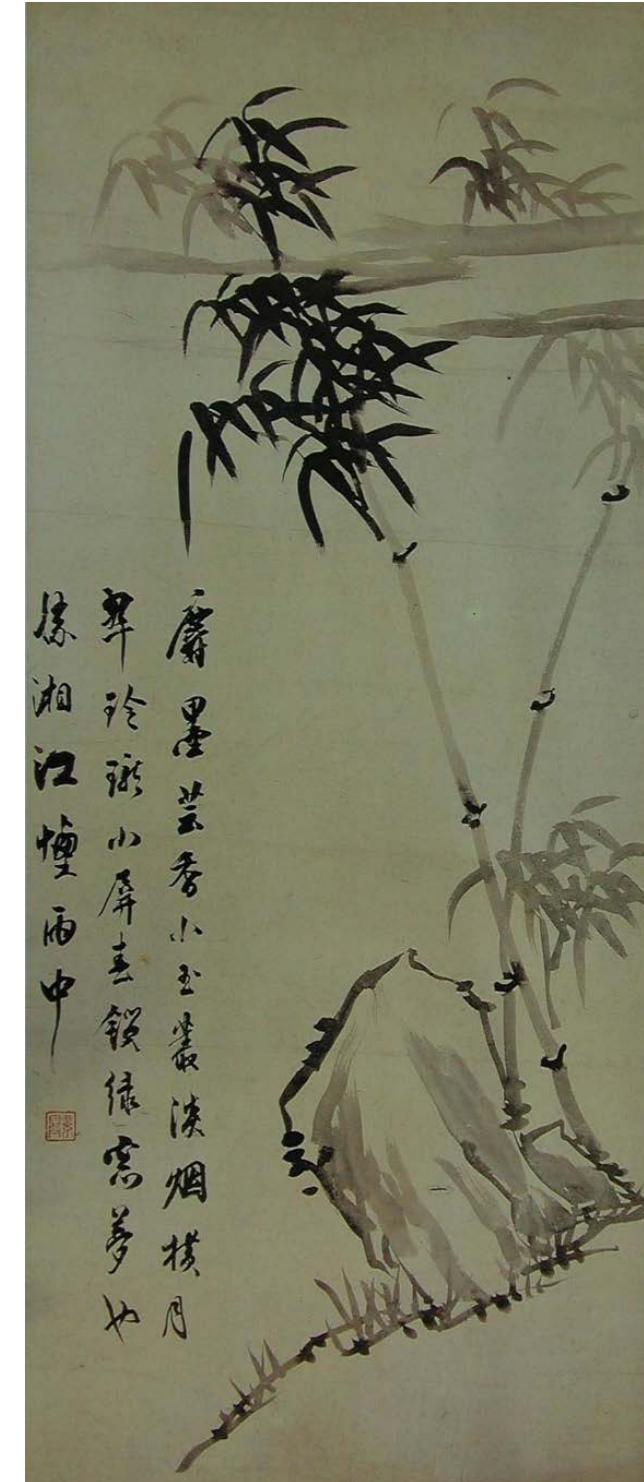 麝墨芸香小玉叢淡烟橫月
翠玲瓏小屏春鎖綠窓夢也
勝湘江煙雨中